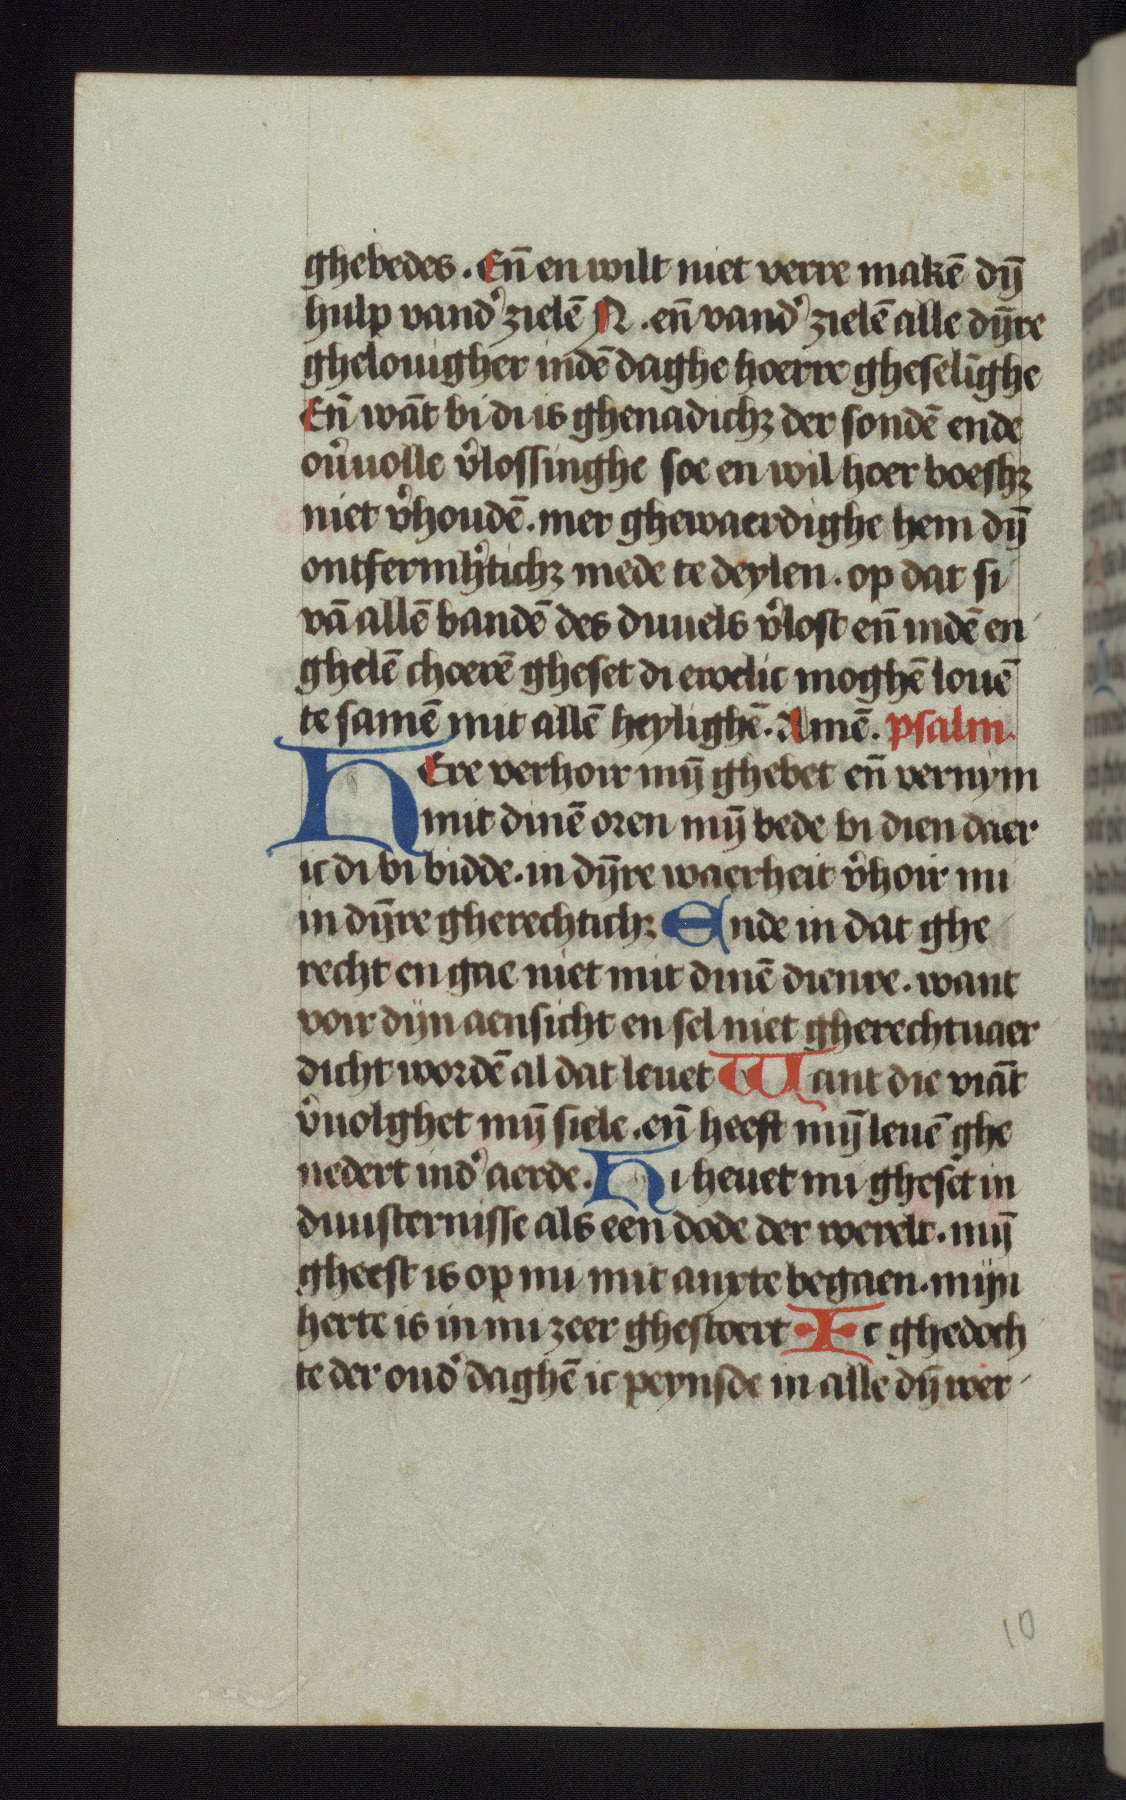 ghebedes. En̄ en wilt niet verre makē dȳ
hulp vand᾽ zielē N. en̄ vand᾽ zielē alle dȳre
ghelouigher indē daghe hoerre gheselīghe
En̄ wāt bi di is ghenadichꝫ der sondē ende
ou᾽uolle v᾽lossinghe soe en wil hoer boeshꝫ
niet v᾽houdē. mer ghewaerdighe hem dȳ
ontfermh᾽tichꝫ mede te deylen. op dat si
vā allē bandē des duuels v᾽lost en̄ indē en
ghelē choerē gheset di ewelic moghē louē
te samē mit allē heylighē. Amē. psalm.
HEre verhoir mȳ ghebet en̄ vernym
mit dinē oren mȳ bede bi dien daer
ic di bi bidde. in dȳre waerheit v᾽hoir mi
in dȳre gherechtichꝫ Ende in dat ghe
recht en gae niet mit dinē dienre. want
voir dijn aensicht en sel niet gherechtuaer
dicht wordē al dat leuet Want die viāt
v᾽uolghet mȳ siele. en̄ heeft mȳ leuē ghe
nedert ind᾽ aerde. Hi heuet mi gheset in
duusternisse als een dode der werelt. mȳ
gheest is op mi mit anxte begaen. mijn
herte is in mi zeer ghestoert Ic ghedoch
te der oud᾽ daghē ic peynsde in alle dȳ wer
10